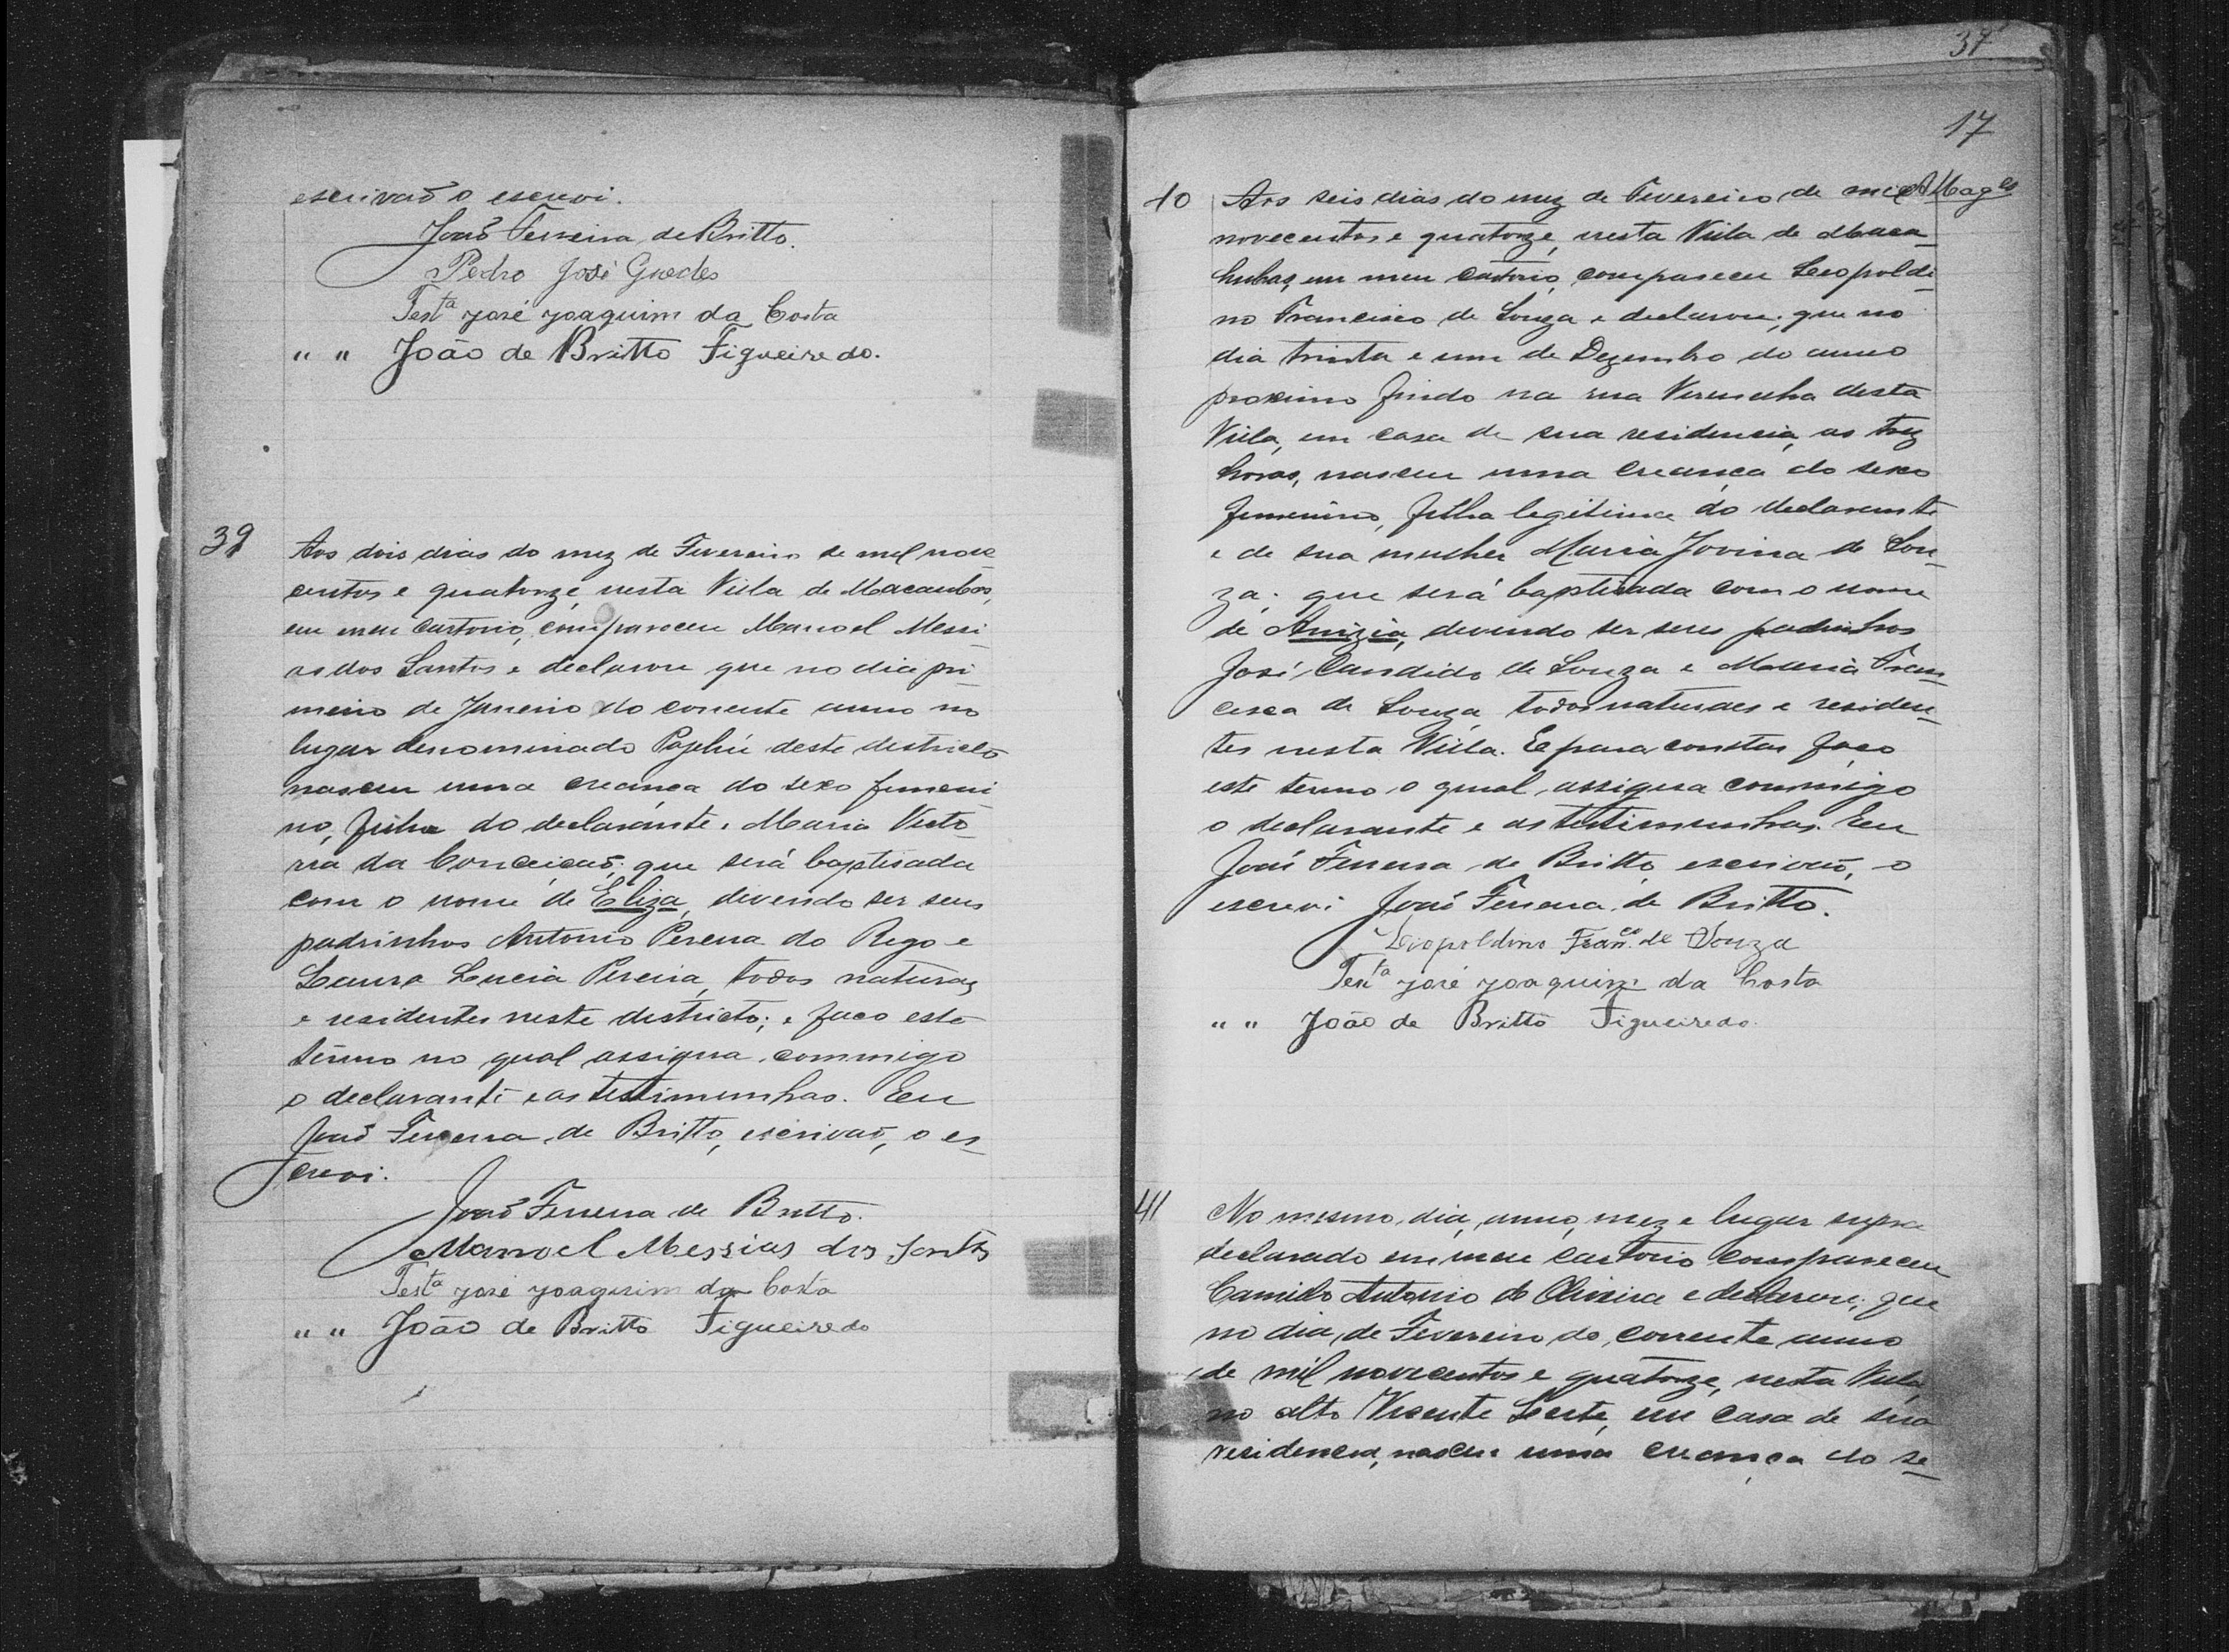 escrivaõ o escrevi.
Joaõ Ferreira de Britto.
Pedro José Guedes
Testª José Joaquim da Costa
" " João de Britto Figueiredo.
39
Aos dois dias do mez de Fevereiro de mil nove
centos e quatorze, nesta Villa de Macaubas,
em meu Cartorio, compareceu Manoel Messi
as dos Santos e declarou que no dia pri
meiro de Janeiro do corrente anno no
lugar denominado Pajehú deste districto
nasceu uma creança do sexo femeni
no, filha do declarante e Maria Victo
ria da Conceição; que será baptisada
com o nome de Eliza, devendo ser seus
padrinhos Antonio Pereira do Rego e
Laura Lucia Pereira, todos naturaes
e residentes neste districto; e faço este
termo no qual assigna commigo
o declarante e as testimunhas. Eu
Joaõ Ferreira de Britto, escrivaõ, o es
crevi.
Joaõ Ferreira de Britto.
Manoel Messias dos Santos
Testª José Joaquim da Costa
" " João de Britto Figueiredo
37
17
40
Aos seis dias do mez de Fevereiro de mil
novecentos e quatorze, nesta Villa de Maca
hubas, em meu cartorio, compareceu Leopoldi
no Francisco de Souza e declarou; que no
dia trinta e um de Dezembro do anno
proximo findo na rua desta
Villa, em casa de sua residencia, as trez
horas, nasceu uma creança do sexo
femenino, filha legitima do declarante
e de sua mulher Maria Jovina de Sou
za; que será baptisada com o nome
de Anizia, devendo ser seus padrinhos
José Candido de Souza e Maria Fran
cisca de Souza, todos naturaes e residen
tes nesta Villa. E para constar faço
este termo o qual assigna commigo
o declarante e as testimunhas. Eu
Joaõ Ferreira de Britto, escrivaõ, o
escrevi Joaõ Ferreira de Britto.
Leopoldino Franco. de Souza
Testª José Joaquim da Costa
" " João de Britto Figueiredo.
41
No mesmo dia, anno, mez e lugar supra
declarado em meu cartorio compareceu
Camilo Antonio de Oliveira e declarou; que
no dia, de Fevereiro do corrente anno
de mil novecentos e quatorze, nesta Villa,
no alto Vicente Leite, em casa de sua
residencia, nasceu uma creança do se